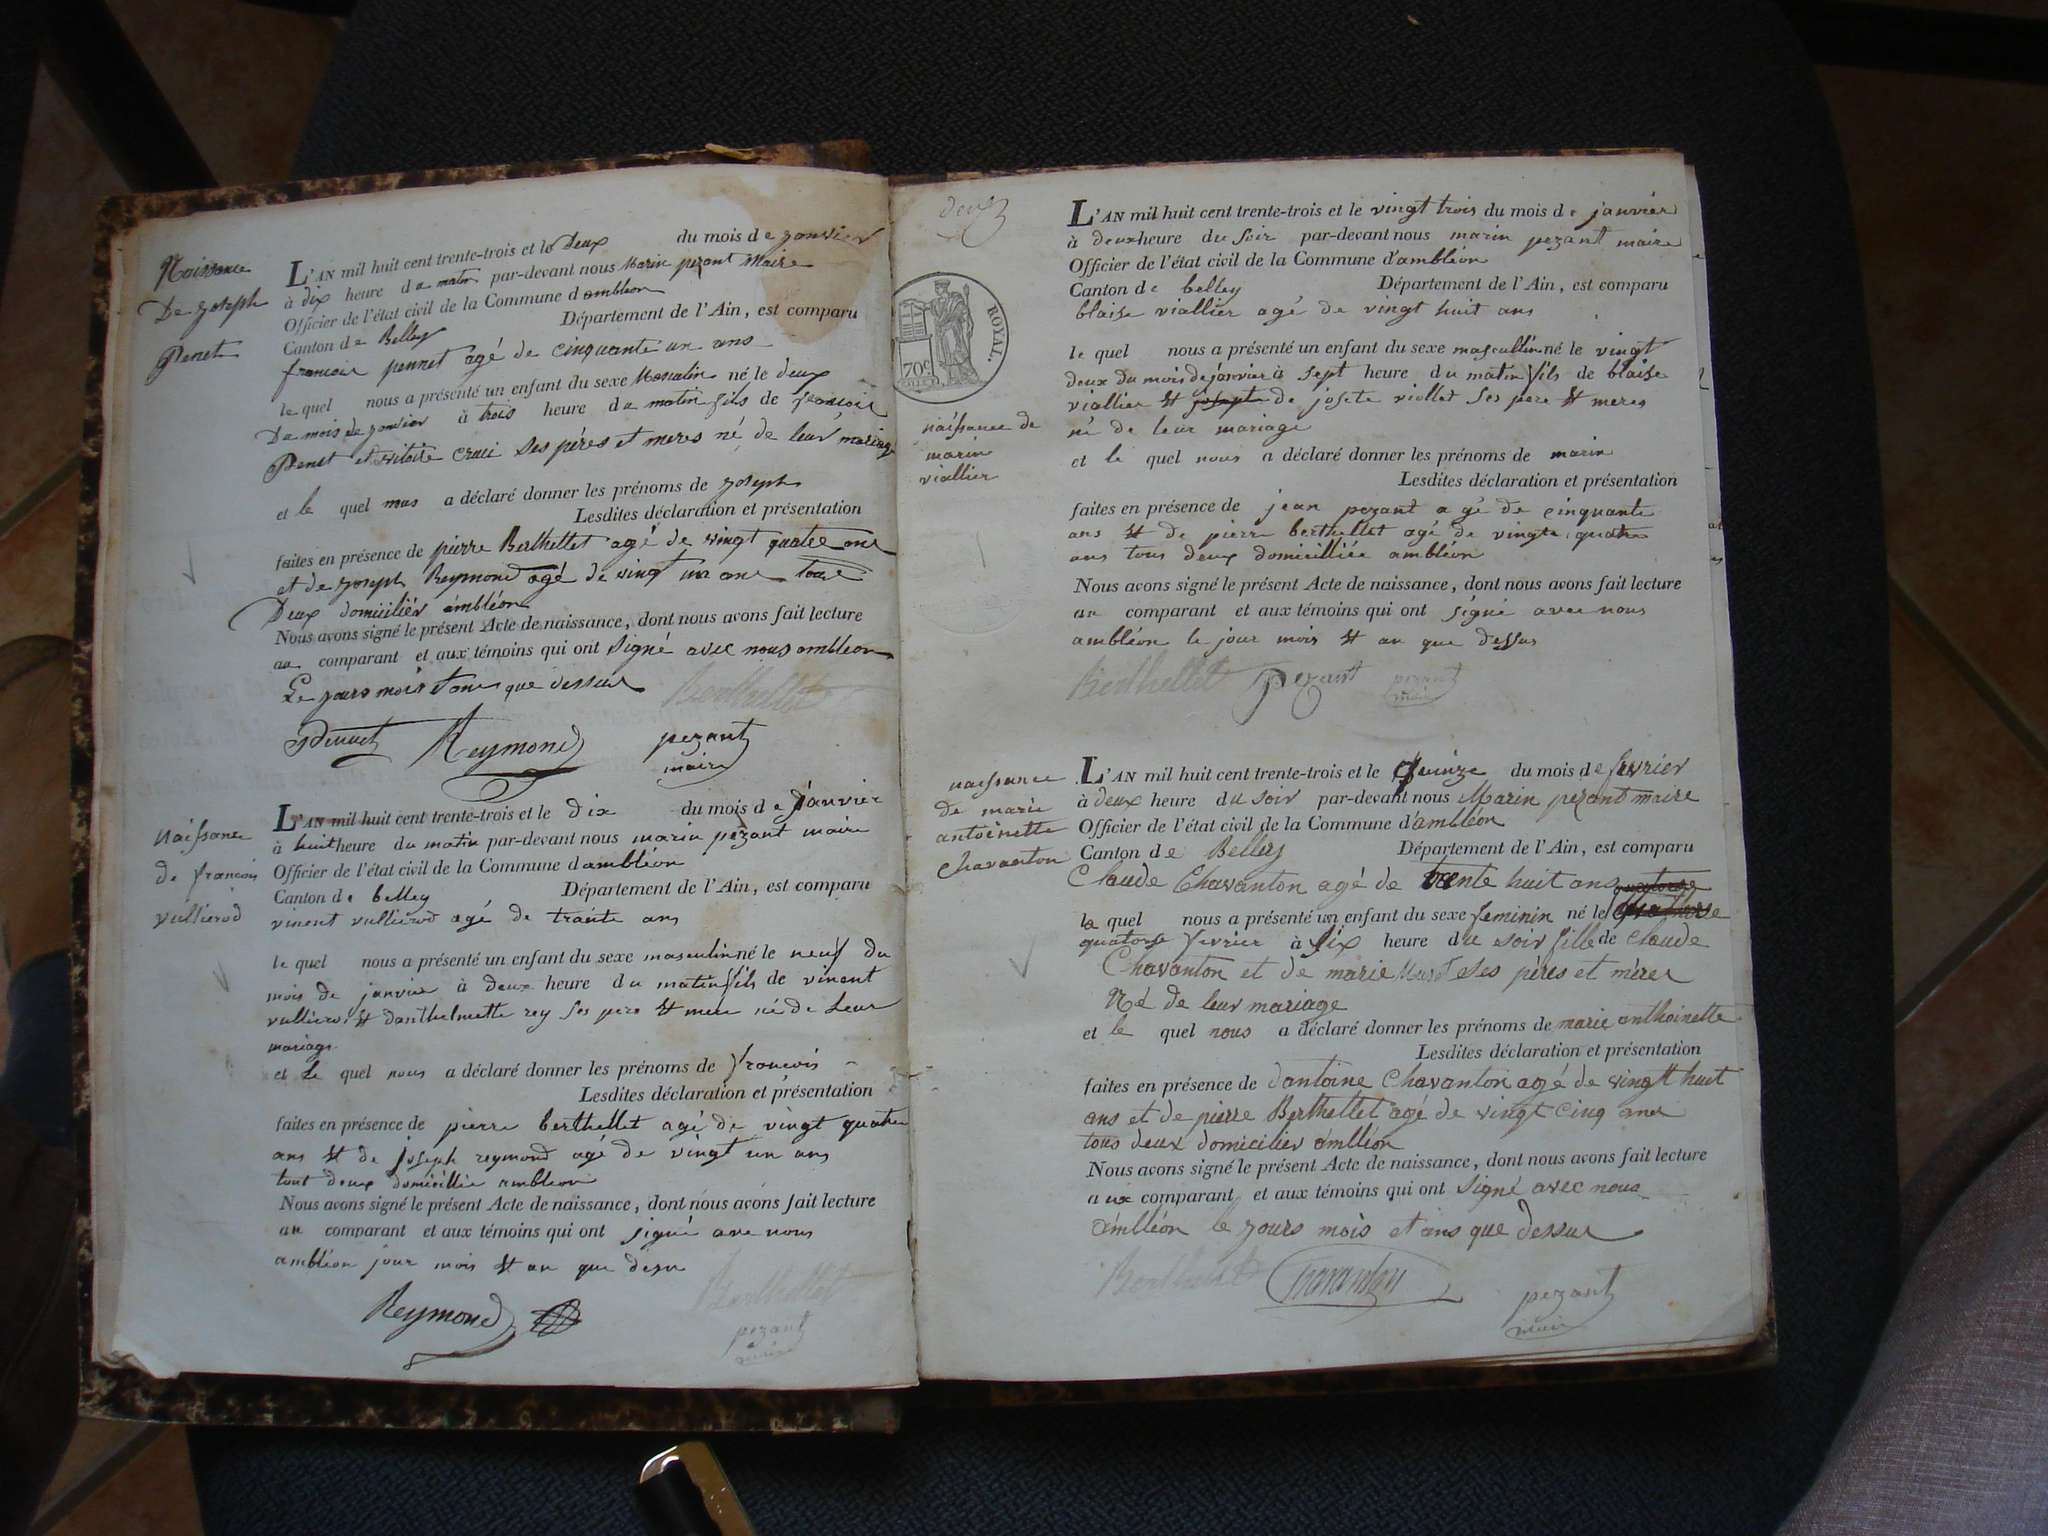 Naissance
De Joseph
Penet
L'AN mil huit cent trente-trois et le Deux du mois de janvier
à dix heure du matin par-devant nous Marin pezant Maire
Officier de l'état civil de la Commune d'ambléon
Canton de Belley Département de l'Ain, est comparu
francois pennet agé de cinquante un ans
le quel nous a présenté un enfant du sexe Masculin né le deux
Du mois de janvier à trois heure du matin fils de francois
Penet et ses pères et meres né de leur mariage
et le quel nous a déclaré donner les prénoms de Joseph
Lesdites déclaration et présentation
faites en présence de pierre Berthellet agé de vingt quatre ans
et de Joseph Reymond agé de vingt un ans tous
Deux domiciliés ambléon
Nous avons signé le présent Acte de naissance, dont nous avons fait lecture
au comparant et aux témoins qui ont Signé avec nous ambléon
Le jours mois et ans que dessus
Berthellet
Pennet Reymond pezant
maire
naissance
de francois
vullierod
L'AN mil huit cent trente-trois et le dix du mois de janvier
à huit heure du matin par-devant nous marin pezant maire
Officier de l'état civil de la Commune d'ambléon
Canton de belley Département de l'Ain, est comparu
vincent vullierod agé de trante ans
le quel nous a présenté un enfant du sexe masculin né le neuf du
mois de janvier à deux heure du matin fils de vincent
vullierod et danthelmette rey ses pere et mere né de leur
mariage
et le quel nous a déclaré donner les prénoms de francois
Lesdites déclaration et présentation
faites en présence de pierre berthellet agé de vingt quatre
ans et de joseph reymond agé de vingt un ans
tout deux domicillie ambléon
Nous avons signé le présent Acte de naissance, dont nous avons fait lecture
au comparant et aux témoins qui ont signé avec nous
ambléon jour mois et an que desu
Berthellet
Reymond pezant
maire
deux
ROYAL.
70c
naissance de
marin
viallier
L'AN mil huit cent trente-trois et le vingt trois du mois de janvier
à deux heure du soir par-devant nous marin pezant maire
Officier de l'état civil de la Commune d'ambléon
Canton de belley Département de l'Ain, est comparu
blaise viallier agé de vingt huit ans
le quel nous a présenté un enfant du sexe mascullin né le vingt
deux du mois de janvier à sept heure du matin fils de blaise
viallier et josepte de josete viollet ses pere et meres
né de leur mariage
et le quel nous a déclaré donner les prénoms de marin
Lesdites déclaration et présentation
faites en présence de jean pezant agé de cinquante
ans et de pierre berthellet agé de vingte quatre
ans tous deux domicilliée ambléon
Nous avons signé le présent Acte de naissance, dont nous avons fait lecture
au comparant et aux témoins qui ont signé avec nous
ambléon le jour mois et an que dessus
Berthellet pezant pezant
maire
naissance
de marie
antoinette
Chavanton
L'AN mil huit cent trente-trois et le Quinze du mois de fevrier
à deux heure du soir par-devant nous Marin pezant maire
Officier de l'état civil de la Commune d'ambléon
Canton de Belley Département de l'Ain, est comparu
Claude Chavanton agé de trente huit ans
le quel nous a présenté un enfant du sexe feminin né le
quatorze fevrier à six heure du soir fille de Claude
Chavanton et de marie ses pères et mères
Né de leur mariage
et le quel nous a déclaré donner les prénoms de marie anthoinette
Lesdites déclaration et présentation
faites en présence de d'antoine Chavanton agé de vingtt huit
ans et de pierre Berthellet agé de vingt cinq ans
tous deux domicilier ambléon
Nous avons signé le présent Acte de naissance, dont nous avons fait lecture
aux comparant et aux témoins qui ont Signé avec nous
ambléon le jours mois et ans que dessus
Berthellet Chavanton pezant
maire